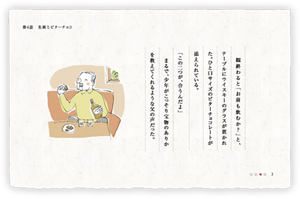 第4話 生涯とビターチョコ
帰終わると「お前も飲むか？」と、
テーブルにウイスキーのグラスが置かれ
た。ひと口サイズのビターチョコレートが
添えられている。
「この二つが、合うんだよ」
まるで、少年がこっそり宝物のありか
を教えてくれるような父の声だった。
3